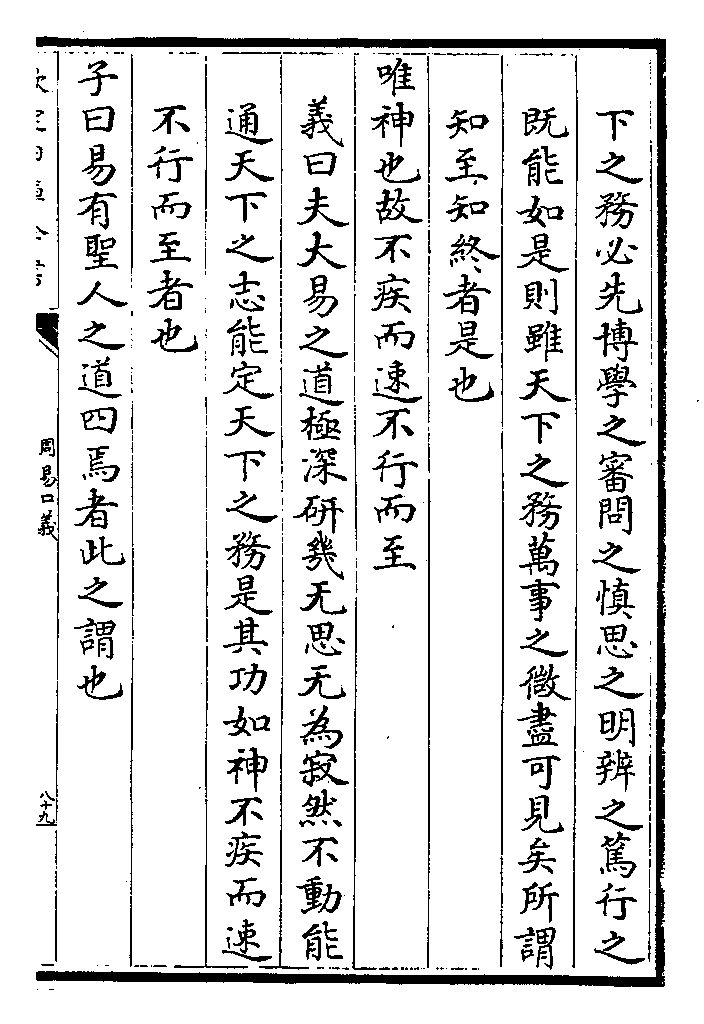 下之務必先博學之審問之慎思之明辨之篤行之
既能如是則雖天下之務萬事之微盡可見矣所謂
知至知終者是也
唯神也故不疾而速不行而至
義曰夫大易之道極深研幾无思无為寂然不動能
通天下之志能定天下之務是其功如神不疾而速
不行而至者也
子曰易有聖人之道四焉者此之謂也
周易口義
八十九